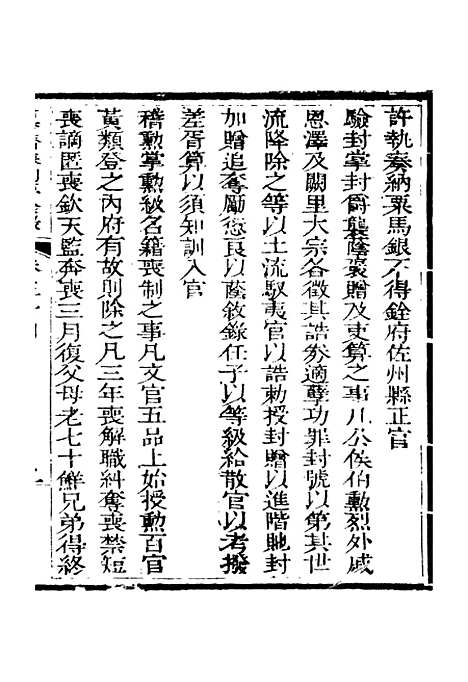 許執奏納粟馬銀不得銓府佐州縣正官
驗封掌封爵襲蔭褒贈及吏算之事凡公侯伯勲烈外戚
恩澤及闕里大宗各徵其誥券適孽功罪封號以第其世
流降除之等以土流馭夷官以誥勅授封贈以進階貤封
加贈追奪勵慝良以蔭敘錄任子以等級給散官以考撥
差胥算以須知訓入官
稽勲掌勲級名籍喪制之事凡文官五品上始授勲百官
黃類登之內府有故則除之凡三年喪解職糾奪喪禁短
喪謫匿喪欽天監奔喪三月復父母老七十鮮兄弟得終